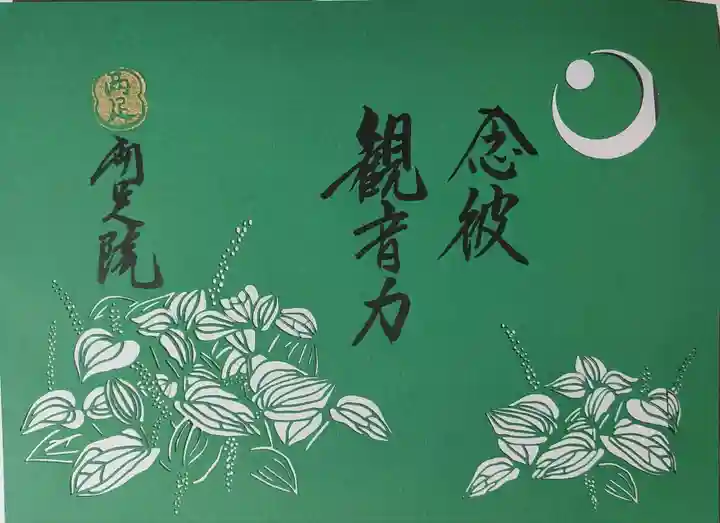 念彼
観音力
両足院
両足